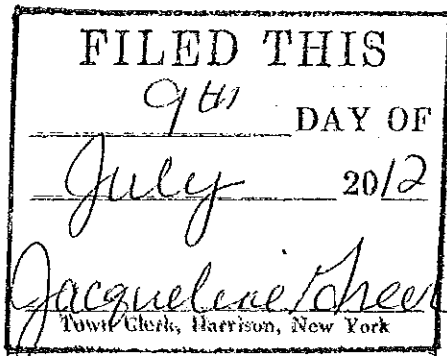 FILED THIS
9th DAY OF
July 2012
Jacqueline Greer
Town Clerk, Harrison, New York